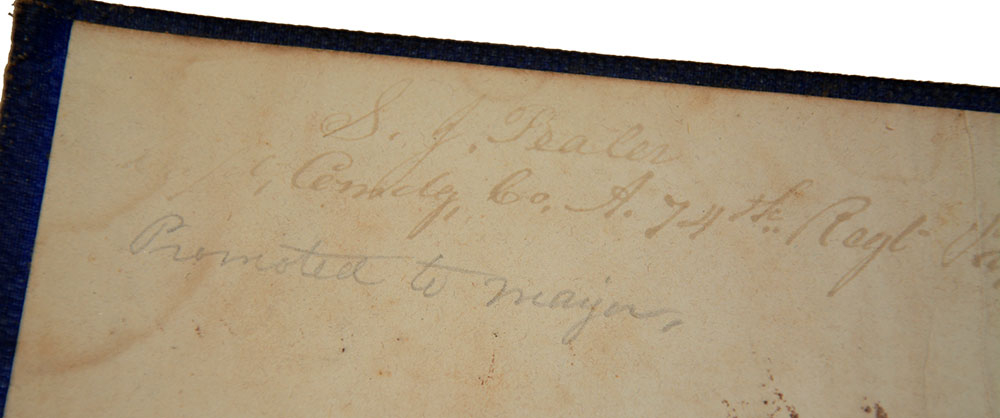 S. J. Pealer
Comdg, Co. A. 74th Regt
Promoted to major,